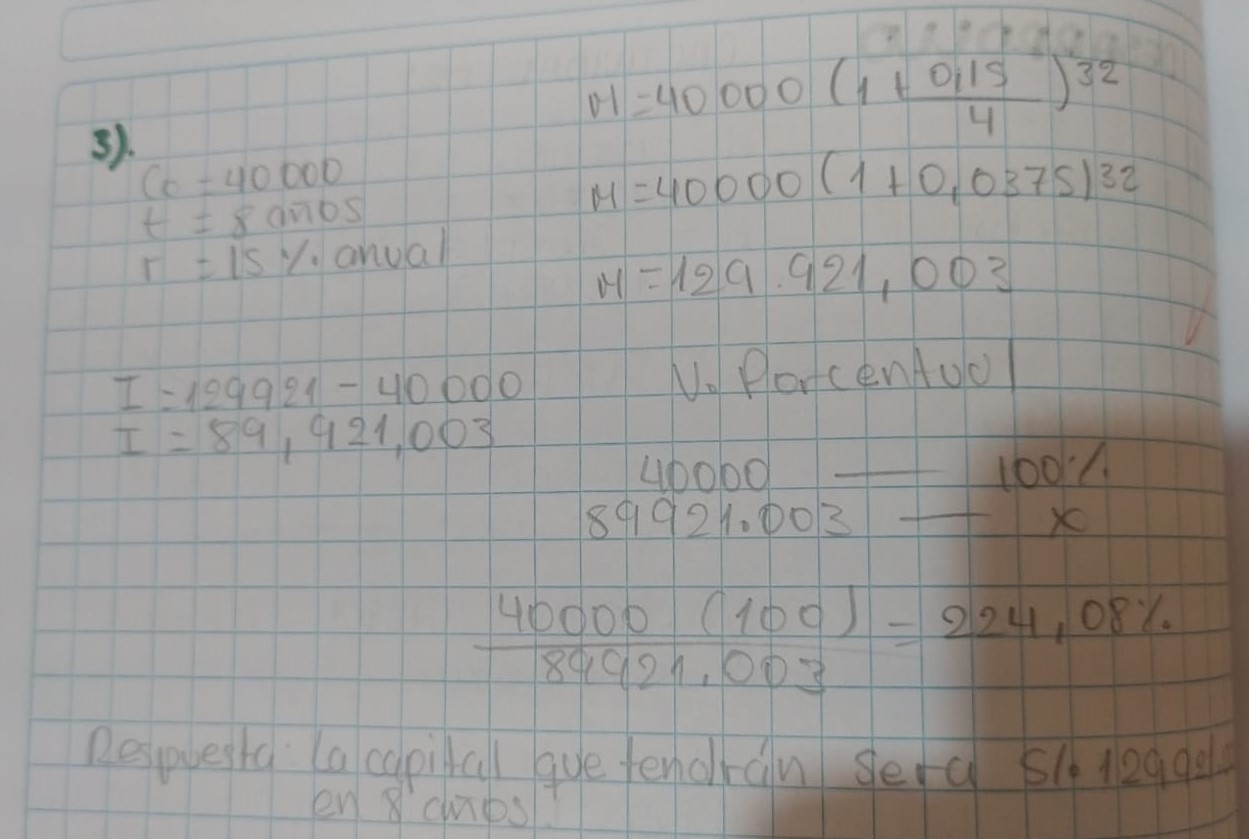 3).
Co = 40000
t = 8 años
r = 15 % anual
M = 40000 (1 + 0,15 / 4 )32
M = 40000 (1 + 0,0375)32
M = 129.921,003
I = 129921 - 40000
I = 89,921,003
V. Porcentual
40000 — 100%
89921.003 — x
40000 (100) / 89921.003 = 224,08%.
Respuesta: la capital que tendrán sera S/. 129921
en 8 años.